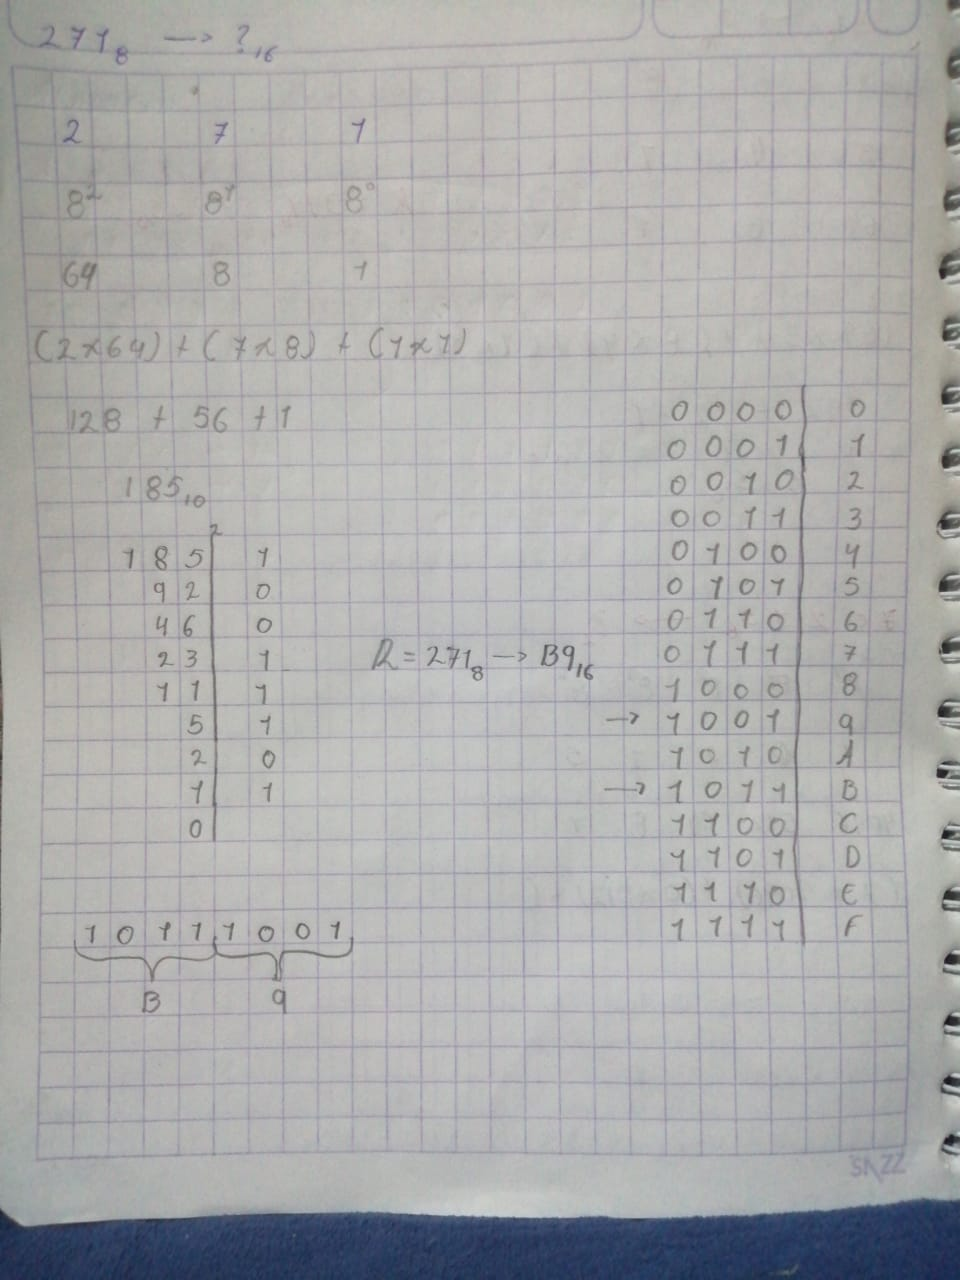 271₈ → ?₁₆
2 7 1
8² 8¹ 8⁰
64 8 1
(2x64) + (7x8) + (1x1)
128 + 56 + 1
185₁₀
2
185 | 1
92 | 0
46 | 0
23 | 1
11 | 1
5 | 1
2 | 0
1 | 1
0 |
1 0 1 1 1 0 0 1
B 9
R = 271₈ → B9₁₆
0 0 0 0 | 0
0 0 0 1 | 1
0 0 1 0 | 2
0 0 1 1 | 3
0 1 0 0 | 4
0 1 0 1 | 5
0 1 1 0 | 6
0 1 1 1 | 7
1 0 0 0 | 8
→ 1 0 0 1 | 9
1 0 1 0 | A
→ 1 0 1 1 | B
1 1 0 0 | C
1 1 0 1 | D
1 1 1 0 | E
1 1 1 1 | F